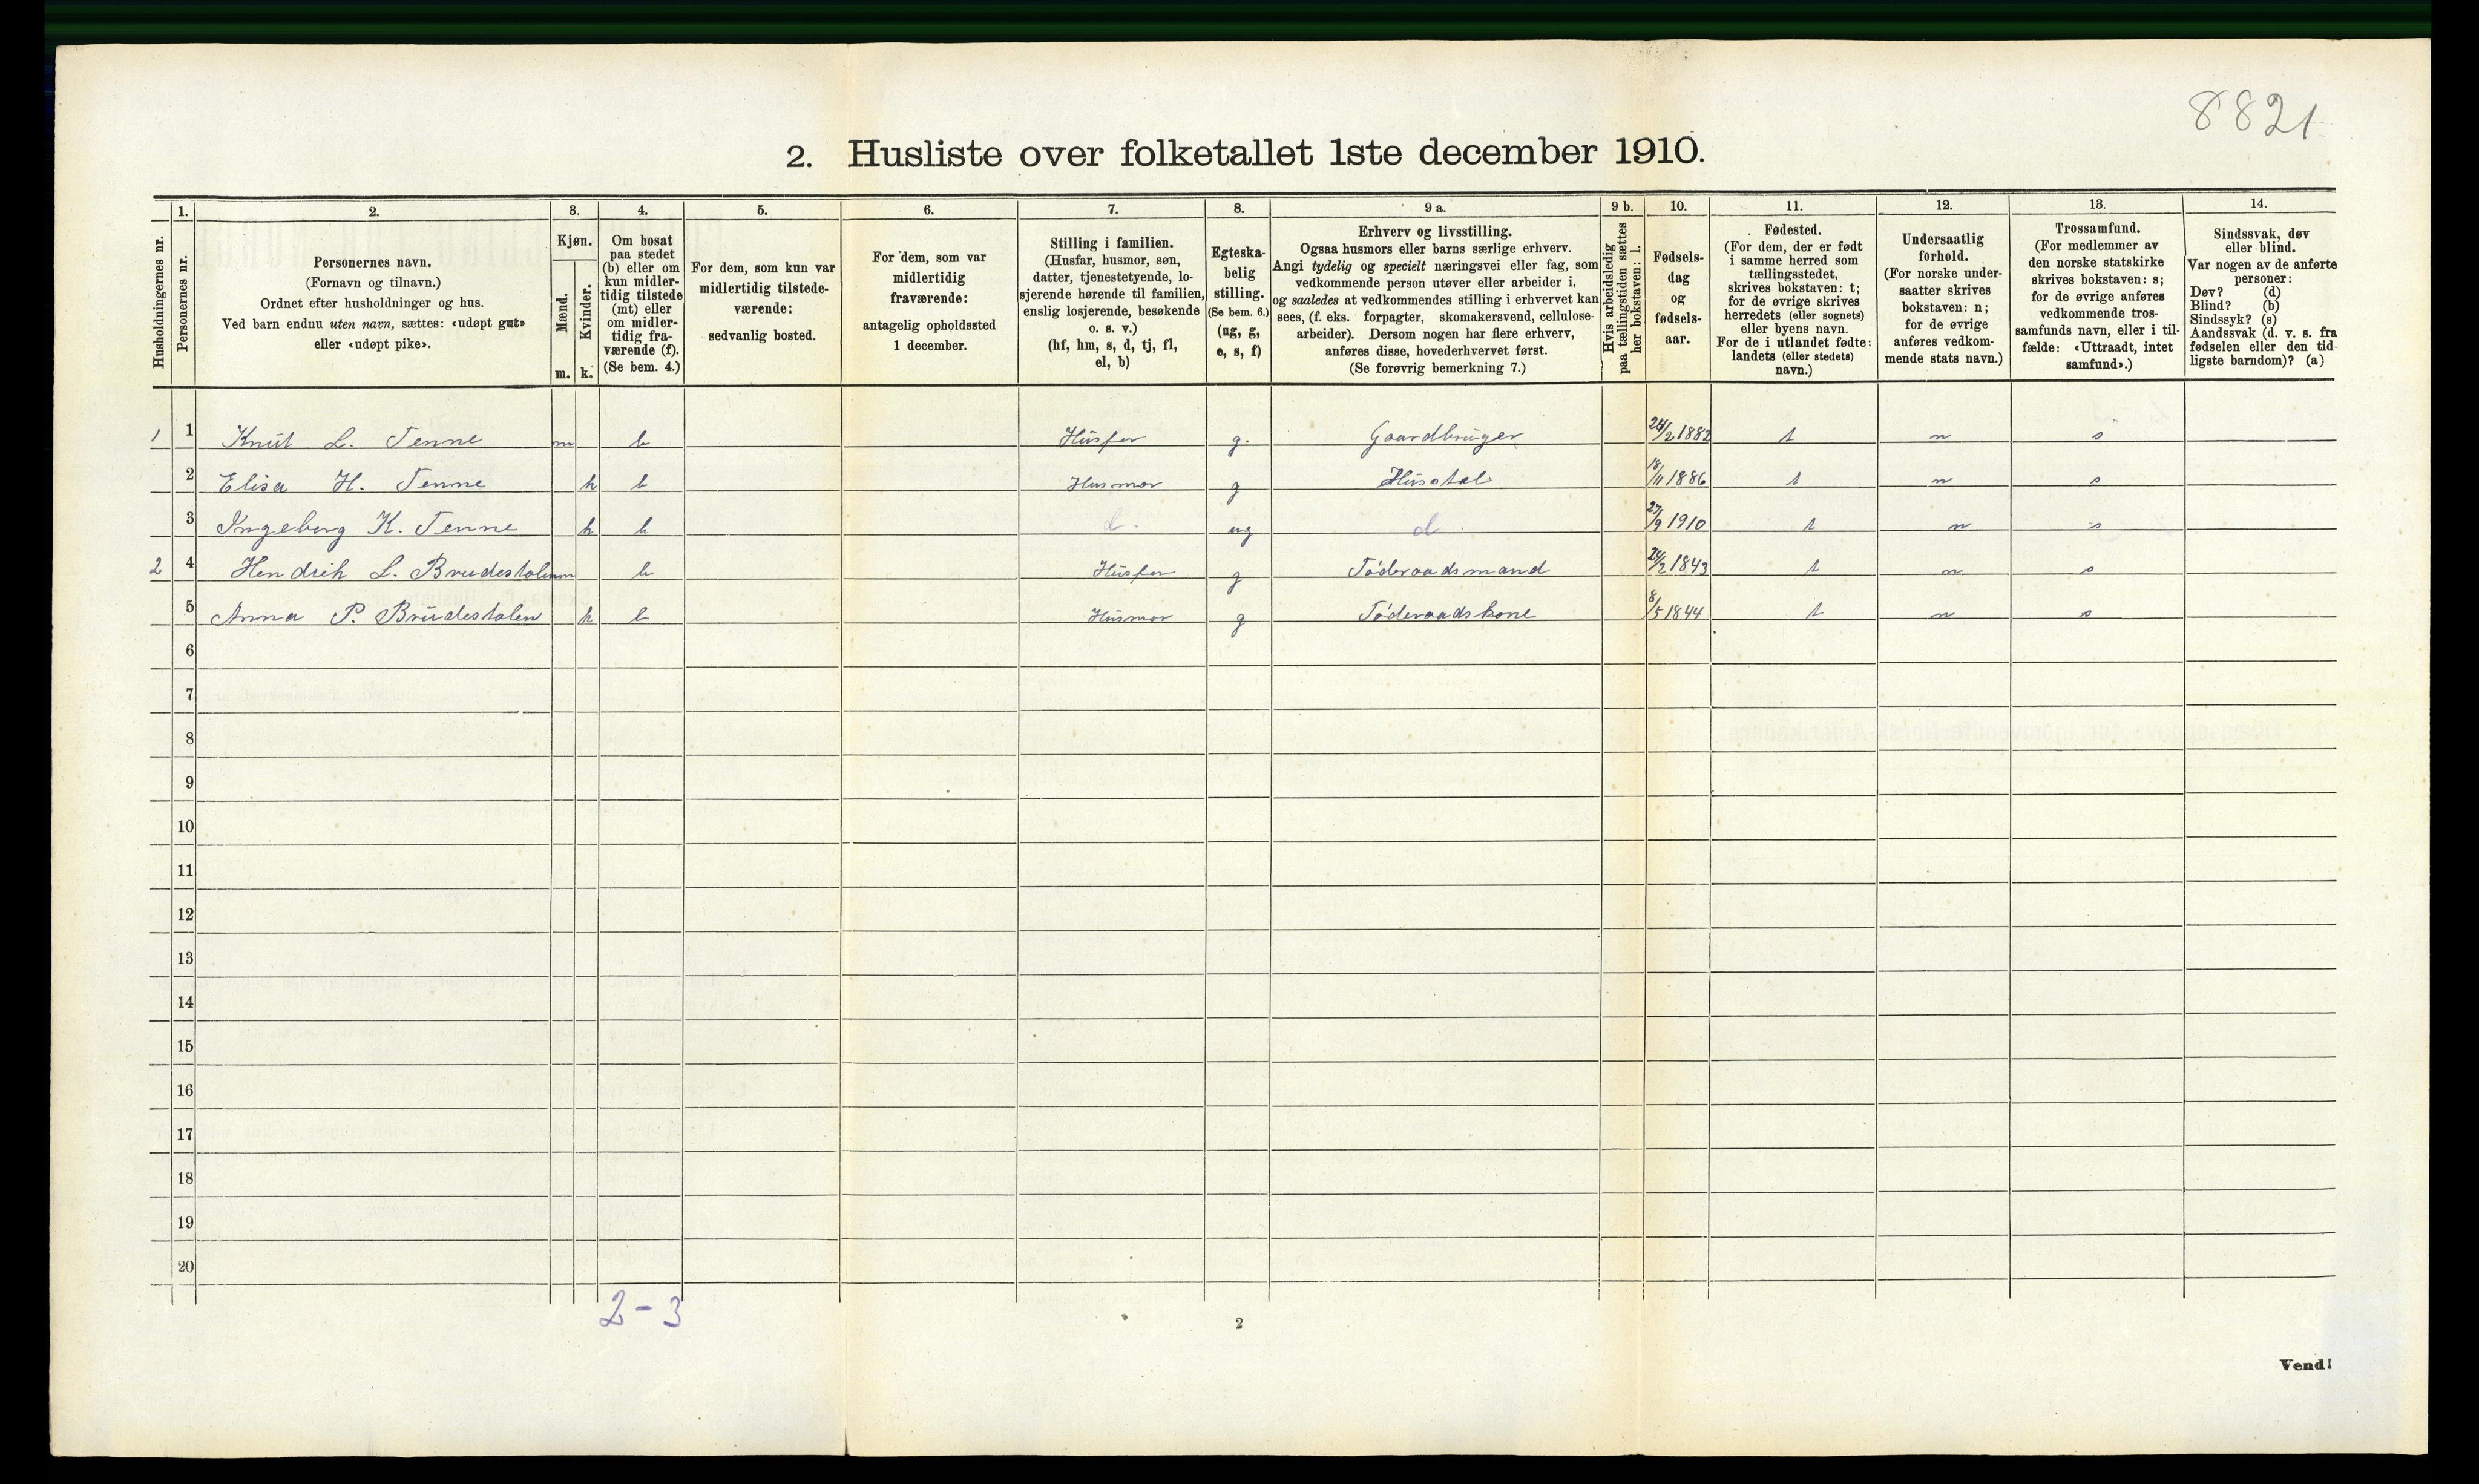 8821
2. Husliste over folketallet 1ste december 1910.
Husholdningernes nr.
1.
Personernes nr.
2.
Personernes navn.
(Fornavn og tilnavn.)
Ordnet efter husholdninger og hus.
Ved barn endnu uten navn, sættes: «udøpt gut»
eller «udøpt pike».
3.
Kjøn.
Mænd.
Kvinder.
m. k.
4.
Om bosat
paa stedet
(b) eller om
kun midler-
tidig tilstede
(mt) eller
om midler-
tidig fra-
værende (f).
(Se bem. 4.)
5.
For dem, som kun var
midlertidig tilstede-
værende:
sedvanlig bosted.
6.
For dem, som var
midlertidig
fraværende:
antagelig opholdssted
1 december.
7.
Stilling i familien.
(Husfar, husmor, søn,
datter, tjenestetyende, lo-
sjerende hørende til familien,
enslig losjerende, besøkende
o. s. v.)
(hf, hm, s, d, tj, fl,
el, b)
8.
Egteska-
belig
stilling.
(Se bem. 6.)
(ug, g,
e, s, f)
9 a.
Erhverv og livsstilling.
Ogsaa husmors eller barns særlige erhverv.
Angi tydelig og specielt næringsvei eller fag, som
vedkommende person utøver eller arbeider i,
og saaledes at vedkommendes stilling i erhvervet kan
sees, (f. eks. forpagter, skomakersvend, cellulose-
arbeider). Dersom nogen har flere erhverv,
anføres disse, hovederhvervet først.
(Se forøvrig bemerkning 7.)
9 b.
Hvis arbeidsledig
paa tællingstiden sættes
her bokstaven: l.
10.
Fødsels-
dag
og
fødsels-
aar.
11.
Fødested.
(For dem, der er født
i samme herred som
tællingsstedet,
skrives bokstaven: t;
for de øvrige skrives
herredets (eller sognets)
eller byens navn.
For de i utlandet fødte:
landets (eller stedets)
navn.)
12.
Undersaatlig
forhold.
(For norske under-
saatter skrives
bokstaven: n;
for de øvrige
anføres vedkom-
mende stats navn.)
13.
Trossamfund.
(For medlemmer av
den norske statskirke
skrives bokstaven: s;
for de øvrige anføres
vedkommende tros-
samfunds navn, eller i til-
fælde: «Uttraadt, intet
samfund».)
14.
Sindssvak, døv
eller blind.
Var nogen av de anførte
personer:
Døv? (d)
Blind? (b)
Sindssyk? (s)
Aandssvak (d. v. s. fra
fødselen eller den tid-
ligste barndom)? (a)
1 1 Knut L. Tenne m b Husfar g. Gaardbruger 24/2 1882 t n s
2 Elisa H. Tenne k b Husmor g Husstel 18/11 1886 t n s
3 Ingeborg K. Tenne k b d. ug d 27/9 1910 t n s
2 4 Hendrik L. Brudestolen m b Husfar g Føderaadsmand 24/2 1843 t n s
5 Anna P. Brudestolen k b Husmor g Føderaadskone 8/5 1844 t n s
6
7
8
9
10
11
12
13
14
15
16
17
18
19
20
2-3
2
Vend!